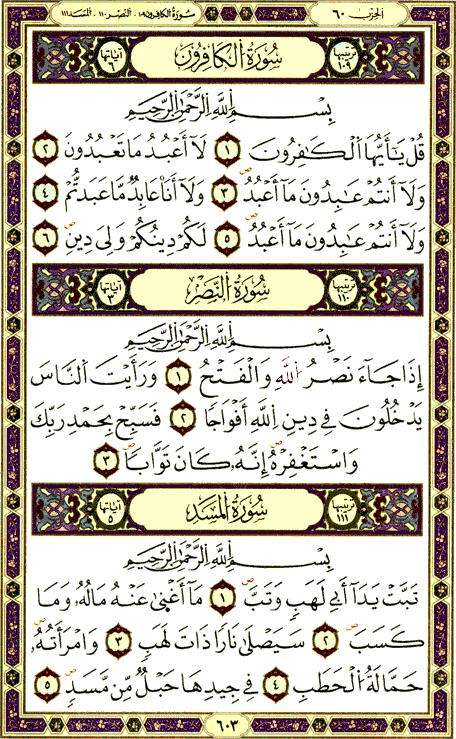 الحزب ٦٠ سورة الكافرون ١٠٩ - النصر ١١٠ - المسد ١١١
ترتيبها ١٠٩ سُورَةُ الكَافِرُونَ آياتها ٦
بِسْمِ اللَّهِ الرَّحْمَٰنِ الرَّحِيمِ
قُلْ يَٰٓأَيُّهَا ٱلْكَٰفِرُونَ ١ لَآ أَعْبُدُ مَا تَعْبُدُونَ ٢
وَلَآ أَنتُمْ عَٰبِدُونَ مَآ أَعْبُدُ ٣ وَلَآ أَنَا۠ عَابِدٌ مَّا عَبَدتُّمْ ٤
وَلَآ أَنتُمْ عَٰبِدُونَ مَآ أَعْبُدُ ٥ لَكُمْ دِينُكُمْ وَلِىَ دِينِ ٦
ترتيبها ١١٠ سُورَةُ النَّصْرِ آياتها ٣
بِسْمِ اللَّهِ الرَّحْمَٰنِ الرَّحِيمِ
إِذَا جَآءَ نَصْرُ ٱللَّهِ وَٱلْفَتْحُ ١ وَرَأَيْتَ ٱلنَّاسَ
يَدْخُلُونَ فِى دِينِ ٱللَّهِ أَفْوَاجًا ٢ فَسَبِّحْ بِحَمْدِ رَبِّكَ
وَٱسْتَغْفِرْهُ إِنَّهُۥ كَانَ تَوَّابًۢا ٣
ترتيبها ١١١ سُورَةُ المَسَدِ آياتها ٥
بِسْمِ اللَّهِ الرَّحْمَٰنِ الرَّحِيمِ
تَبَّتْ يَدَآ أَبِى لَهَبٍ وَتَبَّ ١ مَآ أَغْنَىٰ عَنْهُ مَالُهُۥ وَمَا
كَسَبَ ٢ سَيَصْلَىٰ نَارًا ذَاتَ لَهَبٍ ٣ وَٱمْرَأَتُهُۥ
حَمَّالَةَ ٱلْحَطَبِ ٤ فِى جِيدِهَا حَبْلٌ مِّن مَّسَدٍۭ ٥
٦٠٣